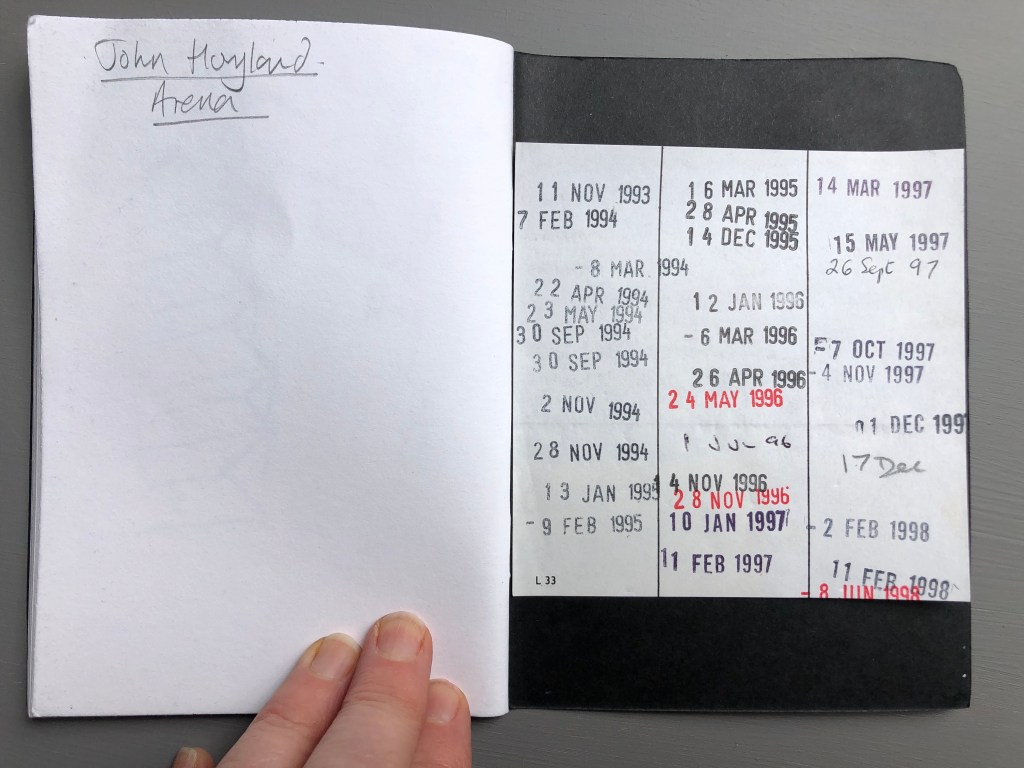 John Hoyland
Arena
11 NOV 1993
7 FEB 1994
- 8 MAR 1994
22 APR 1994
23 MAY 1994
30 SEP 1994
30 SEP 1994
2 NOV 1994
28 NOV 1994
13 JAN 1995
- 9 FEB 1995
L 33
16 MAR 1995
28 APR 1995
14 DEC 1995
12 JAN 1996
- 6 MAR 1996
26 APR 1996
24 MAY 1996
1 JUL 96
14 NOV 1996
28 NOV 1996
10 JAN 1997
11 FEB 1997
14 MAR 1997
15 MAY 1997
26 Sept 97
-7 OCT 1997
- 4 NOV 1997
01 DEC 1997
17 Dec
- 2 FEB 1998
11 FEB 1998
- 8 JUN 1998